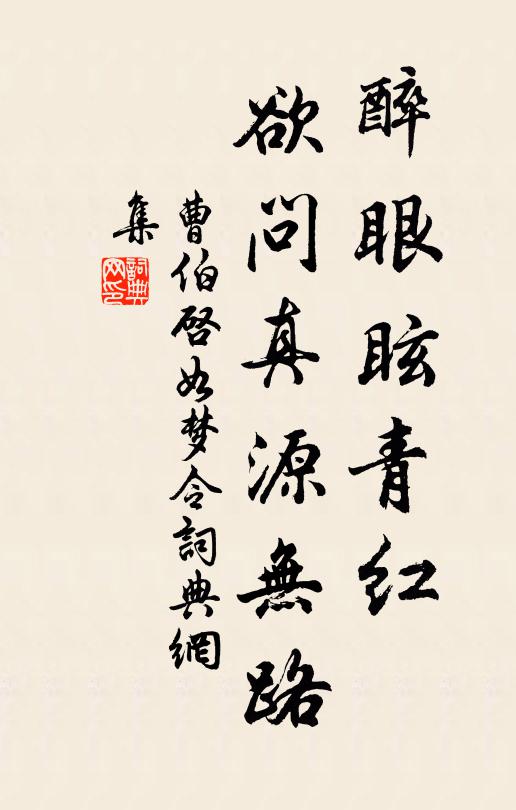 醉眼眩青红
欲问真源無路
曹伯启如梦令詞典網
集
詞典网印